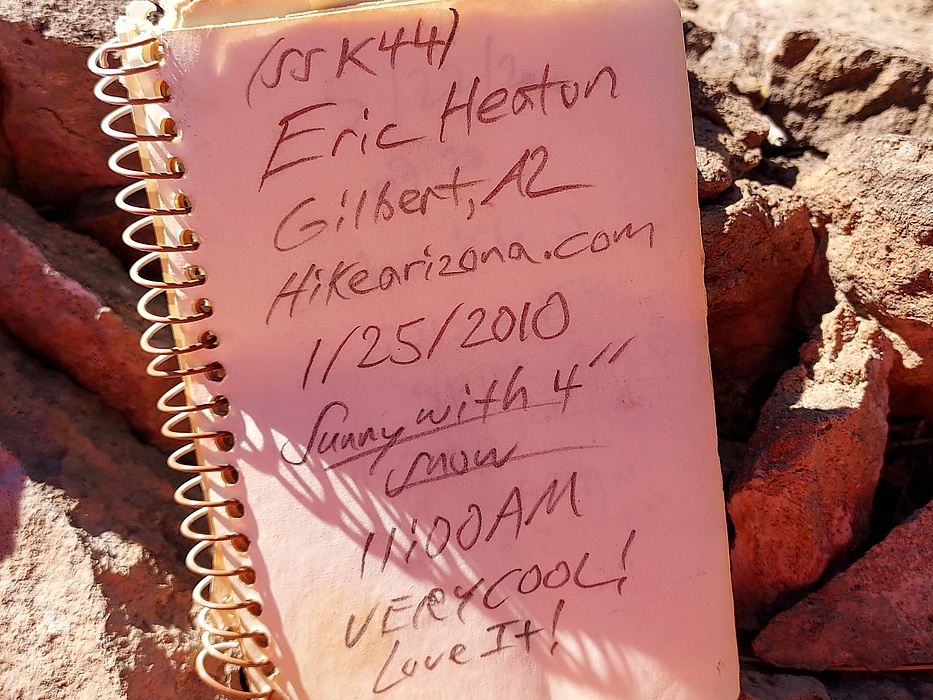 (SSK44)
Eric Heaton
Gilbert, AZ
Hikearizona.com
1/25/2010
Sunny with 4"
snow
11:00AM
VERY COOL!
Love It!